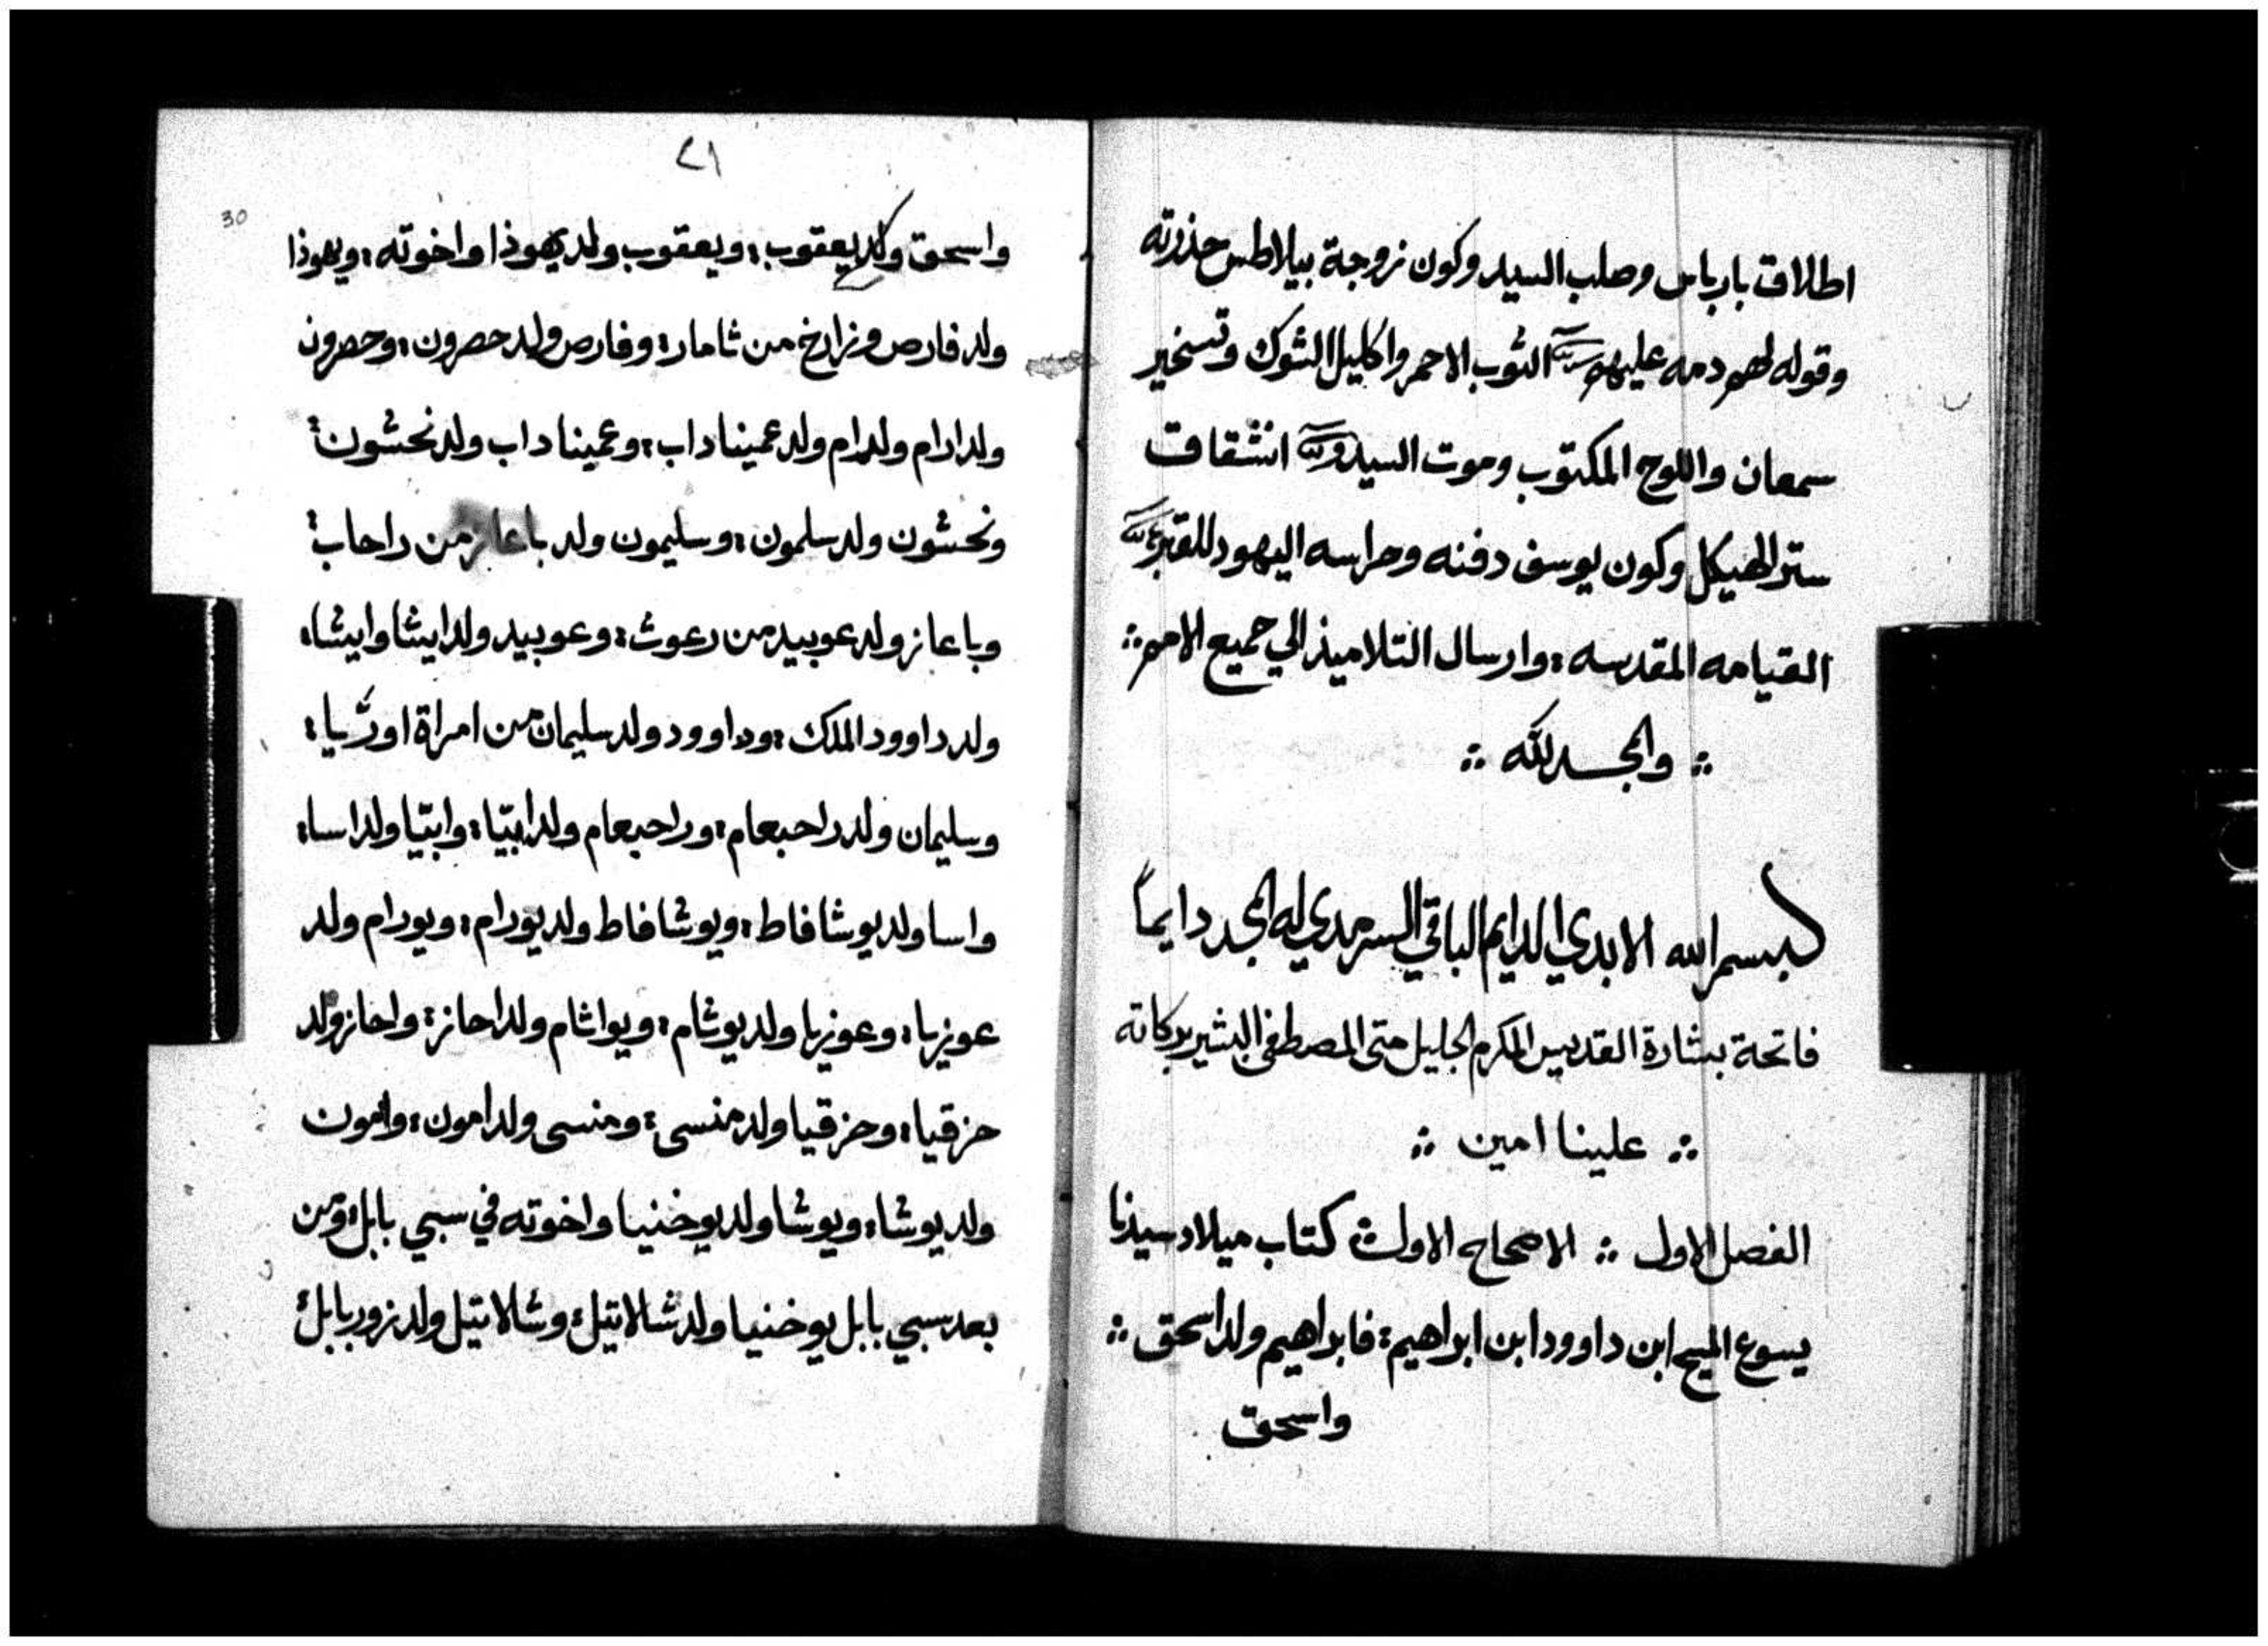 اطلاق بارباس وصلب السيد وكون زوجة بيلاطس حذرته
وقوله لهم دمه عليهم الثوب الاحمر واكليل الشوك وتسخير
سمعان واللوح المكتوب وموت السيد انشقاق
ستر الهيكل وكون يوسف دفنه وحراسه اليهود للقبر
القيامه المقدسه ؛ وارسال التلاميذ الي جميع الامم ؞
؞ والمجد لله ؞
بسم الله الابدي الدايم الباقي السرمدي له المجد دايماً
فاتحة بشارة القديس المكرم الجليل متى المصطفى البشير بركاته
؞ علينا امين ؞
الفصل الاول ؞ الاصحاح الاول ؞ كتاب ميلاد سيدنا
يسوع المسيح ابن داوود ابن ابراهيم ؛ فابراهيم ولد اسحق ؞
واسحق
٢١
30
واسحق ولد يعقوب ؛ ويعقوب ولد يهوذا واخوته ؛ ويهوذا
ولد فارص وزارخ من ثامار ؛ وفارص ولد حصرون ؛ وحصرون
ولد ارام ولد عميناداب ؛ وعميناداب ولد نحشون ؛
ونحشون ولد سلمون ؛ وسليمون ولد باعاز من راحاب ؛
وباعاز ولد عوبيد من رعوث ؛ وعوبيد ولد ايشا وايشا ؛
ولد داوود الملك ؛ وداوود ولد سليمان من امراة اوريا ؛
وسليمان ولد راحبعام ؛ وراحبعام ولد ابيّا ؛ وابيّا ولد اسا ؛
واسا ولد يوشافاط ؛ ويوشافاط ولد يورام ؛ ويورام ولد
عوزيا ؛ وعوزيا ولد يوثام ؛ ويواثام ولد احاز ؛ واحاز ولد
حزقيا ؛ وحزقيا ولد منسى ؛ ومنسى ولد امون ؛ وامون
ولد يوشا ؛ ويوشا ولد يوخنيا واخوته في سبي بابل ؛ ومن
بعد سبي بابل يوخنيا ولد شالاتيل ؛ وشالاتيل ولد زوربابل ؛